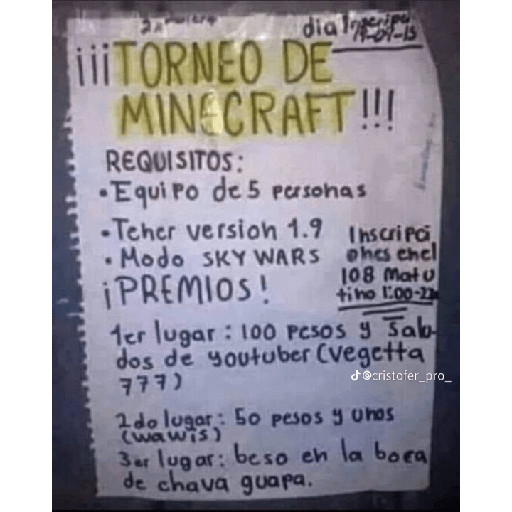 dia
¡¡¡TORNEO DE
MINECRAFT!!!
REQUISITOS:
• Equipo de 5 personas
• Tener version 1.9
• Modo SKY WARS
Inscripci
ones en el
108 Matu
tino
¡PREMIOS!
1er lugar: 100 pesos y Salu
dos de youtuber (vegetta
777)
@cristofer_pro_
2do lugar: 50 pesos y unos
(wawis)
3er lugar: beso en la boca
de chava guapa.